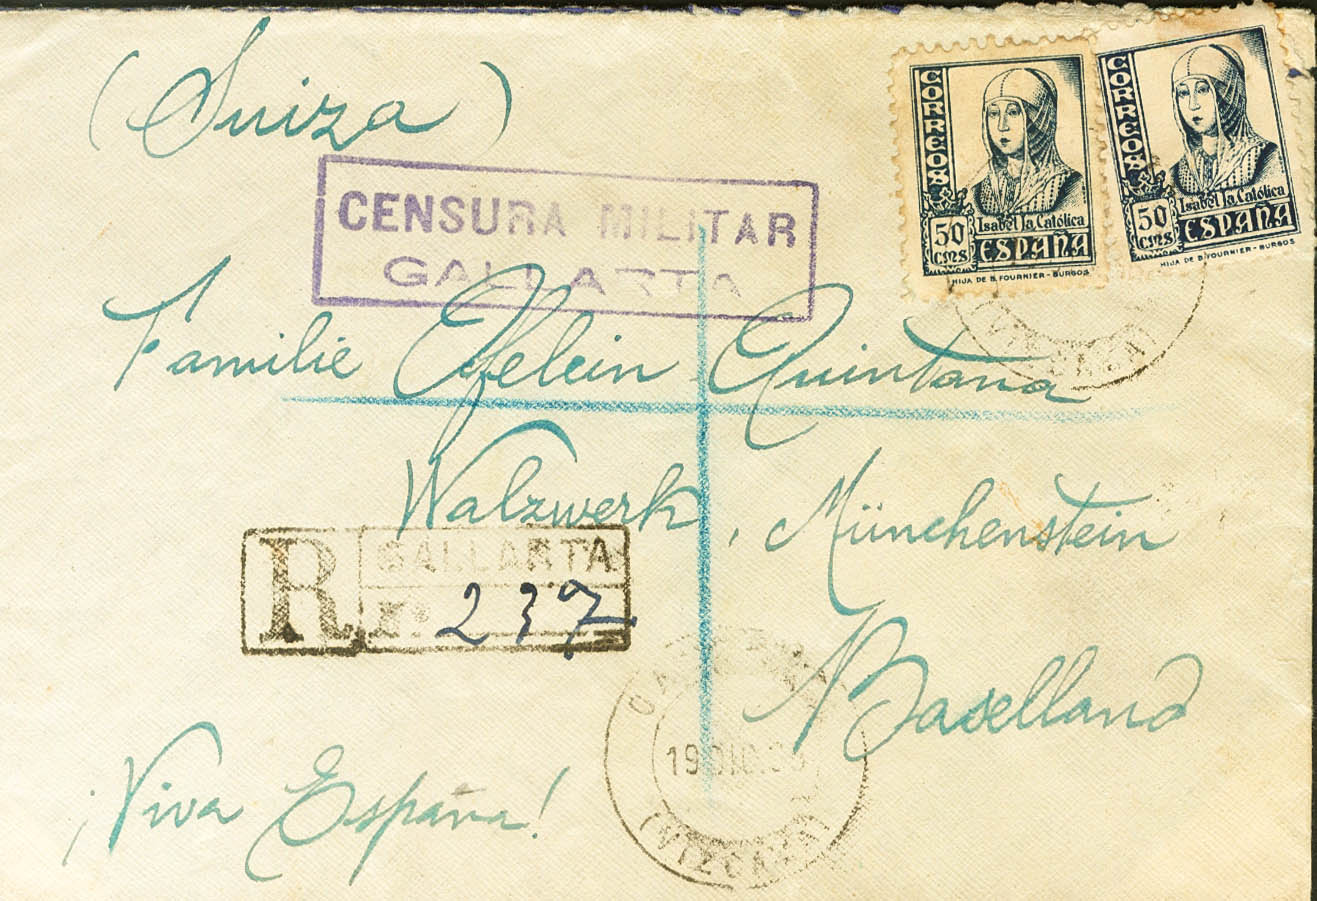 (Suiza)
CORREOS
50 CMS
Isabel la Católica
ESPAÑA
HIJA DE B. FOURNIER - BURGOS
CORREOS
50 CMS
Isabel la Católica
ESPAÑA
HIJA DE B. FOURNIER - BURGOS
CENSURA MILITAR
GALLARTA
(VIZCAYA)
Familie Quintana
Walzwerk, Münchenstein
R GALLARTA
Nº 237
Baselland
19 DIC.
(VIZCAYA)
¡Viva España!